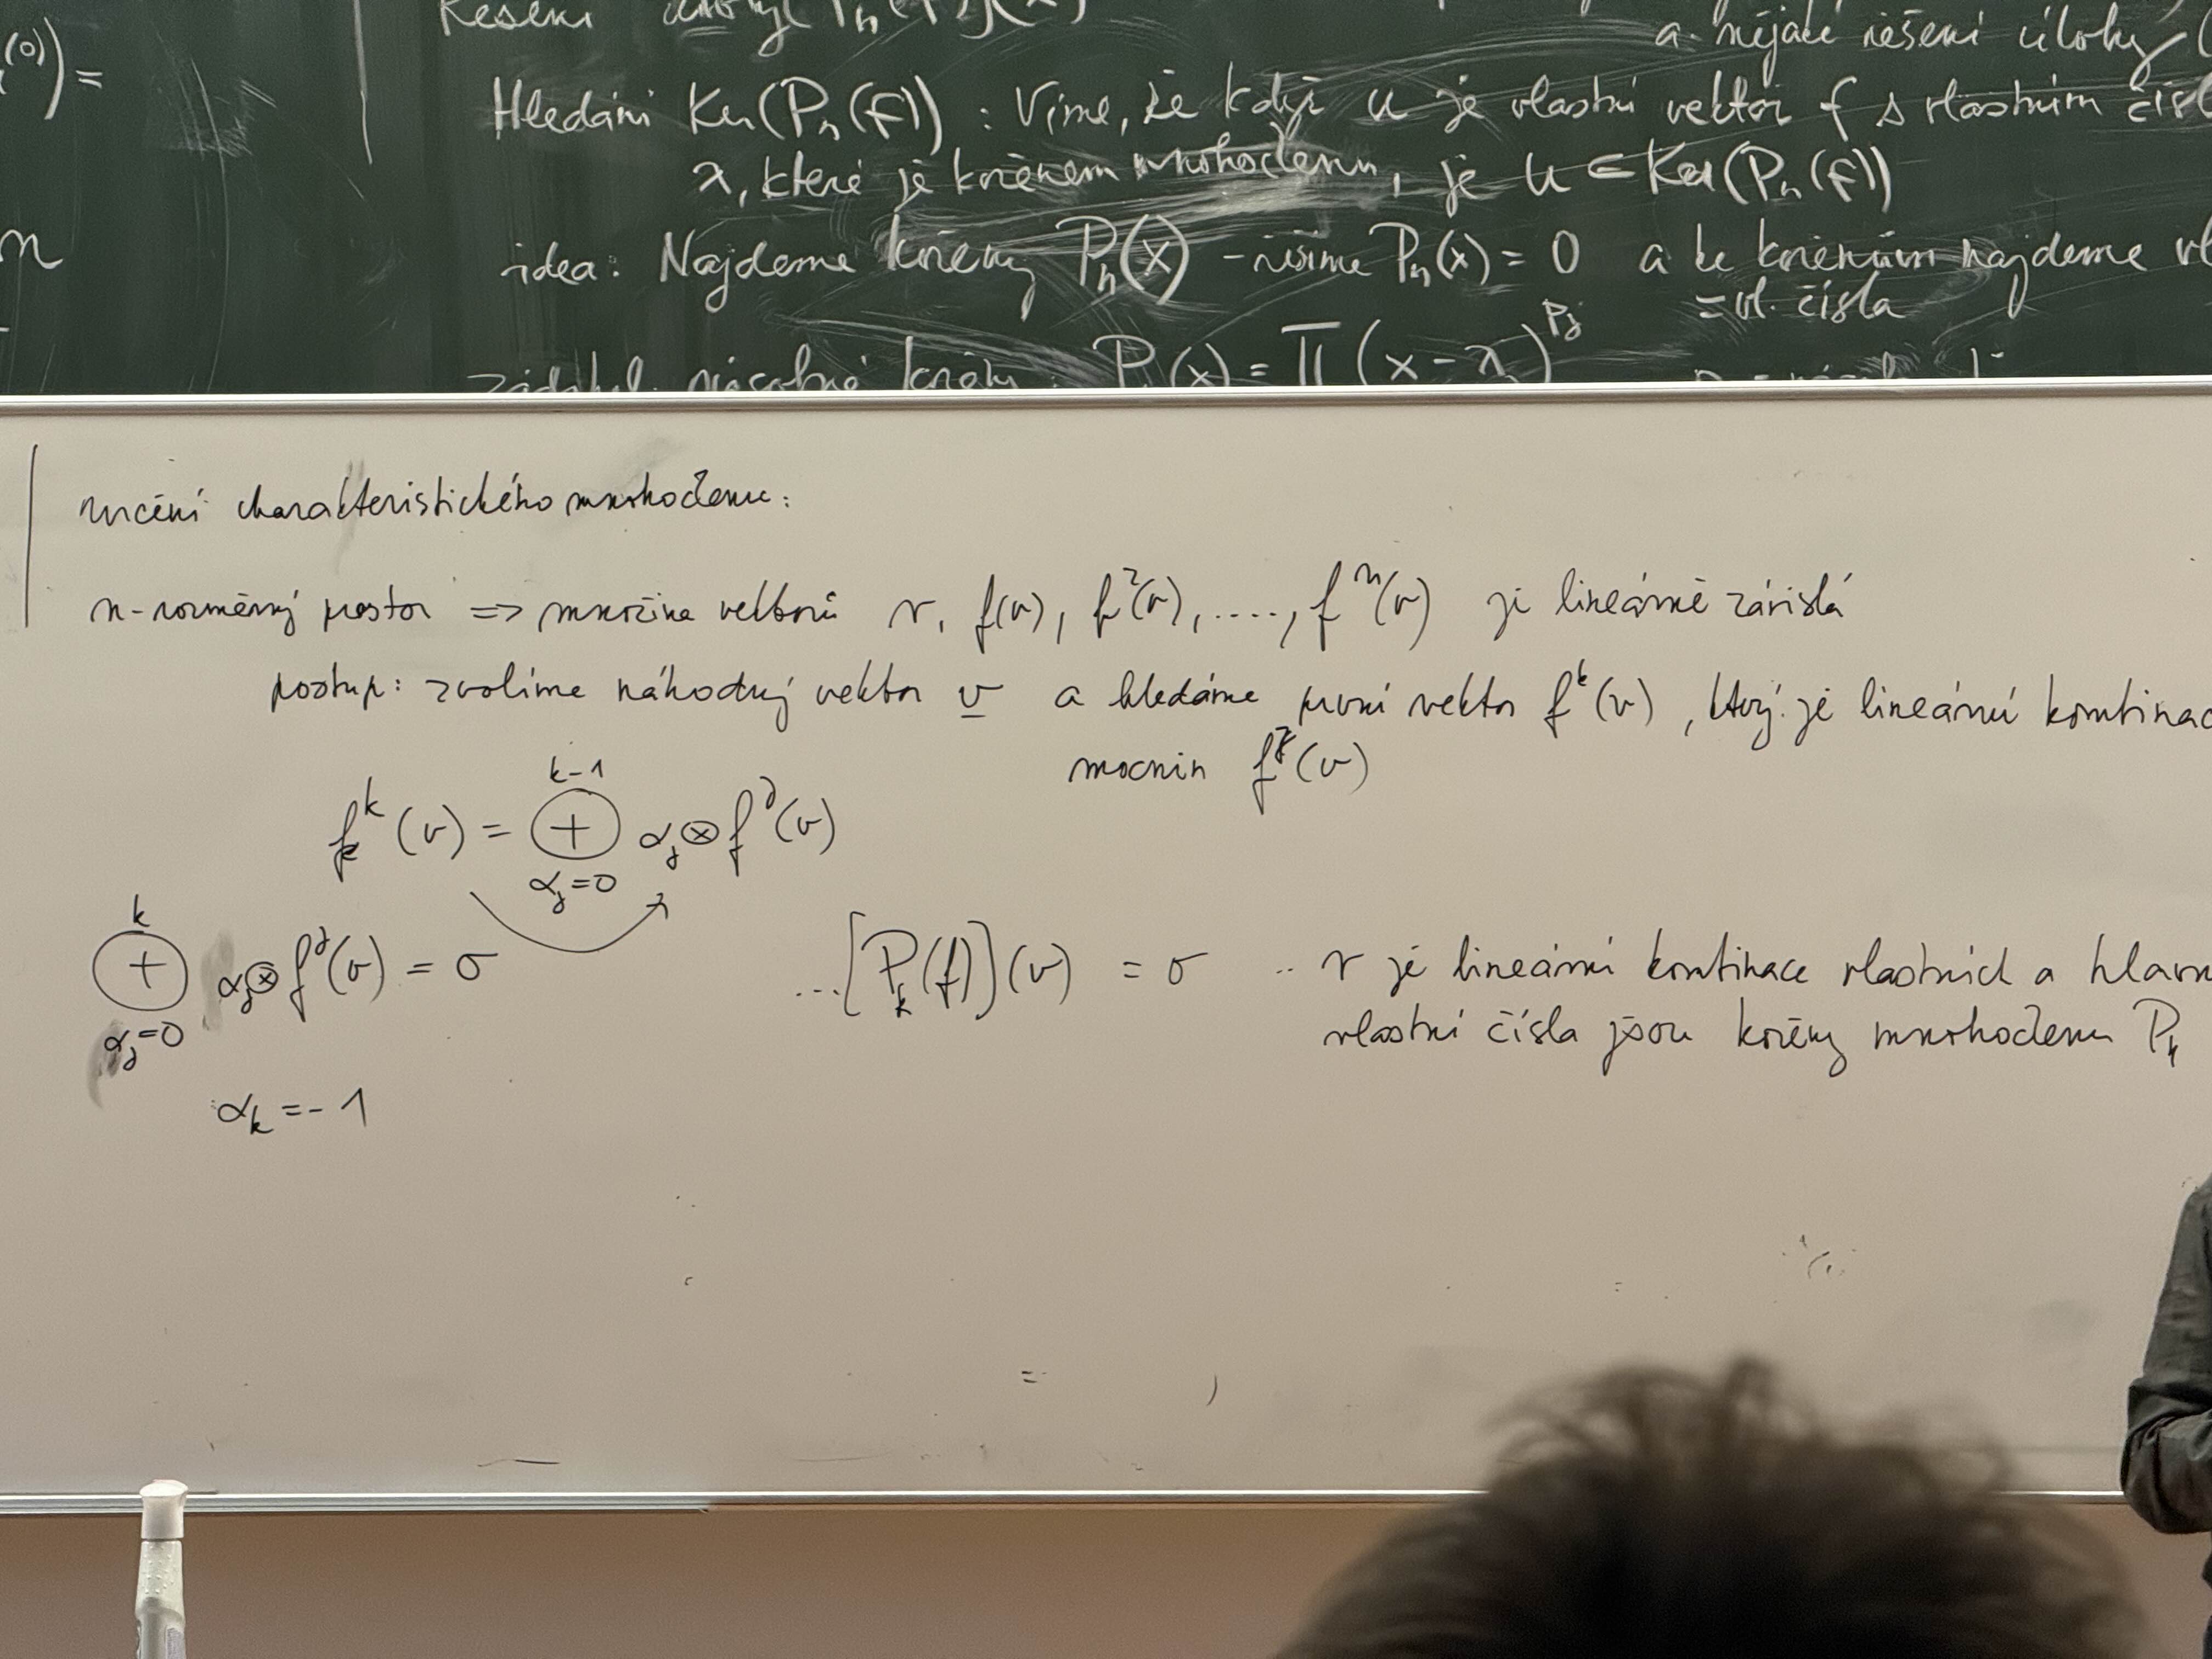 (0)) =
n
Řešení úlohy P_n(f)(x)
a - nějaké řešení úlohy (
Hledání Ker(P_n(f)) : Víme, že když u je vlastní vektor f s vlastním čísl
λ, které je kořenem mnohočlenu, je u ∈ Ker(P_n(f))
idea: Najdeme kořeny P_n(x) - řešíme P_n(x) = 0 a ke kořenům najdeme vl
= vl. čísla
násobné kořeny: P_n(x) = ∏ (x - λ_j)^{p_j}
určení characteristického mnohočlenu:
n-rozměrný prostor => množina vektorů v, f(v), f²(v), ...., fⁿ(v) je lineárně závislá
postup: zvolíme náhodný vektor v a hledáme první vektor f^k(v), který je lineární kombinac
mocnin f^j(v)
f^k(v) = ⊕_{α_j=0}^{k-1} α_j ⊗ f^j(v)
⊕_{α_j=0}^{k} α_j ⊗ f^j(v) = σ ...[P_k(f)](v) = σ .. v je lineární kombinace vlastních a hlavn
vlastní čísla jsou kořeny mnohočlenu P_k
α_k = -1